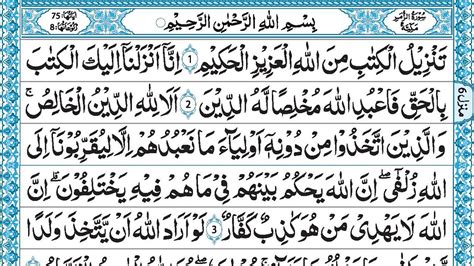 سُوْرَةُ الزُّمَرِ مَكِّيَّةٌ
بِسْمِ اللّٰهِ الرَّحْمٰنِ الرَّحِيْمِ
اٰيَاتُهَا 75
رُكُوْعَاتُهَا 8
تَنْزِيْلُ الْكِتٰبِ مِنَ اللّٰهِ الْعَزِيْزِ الْحَكِيْمِ 1 اِنَّاۤ اَنْزَلْنَاۤ اِلَيْكَ الْكِتٰبَ
بِالْحَقِّ فَاعْبُدِ اللّٰهَ مُخْلِصًا لَّهُ الدِّيْنَ 2 اَلَا لِلّٰهِ الدِّيْنُ الْخَالِصُ ؕ
وَالَّذِيْنَ اتَّخَذُوْا مِنْ دُوْنِهٖۤ اَوْلِيَآءَ ۘ مَا نَعْبُدُهُمْ اِلَّا لِيُقَرِّبُوْنَاۤ اِلَى
اللّٰهِ زُلْفٰى ؕ اِنَّ اللّٰهَ يَحْكُمُ بَيْنَهُمْ فِيْ مَا هُمْ فِيْهِ يَخْتَلِفُوْنَ ؕ اِنَّ
اللّٰهَ لَا يَهْدِيْ مَنْ هُوَ كٰذِبٌ كَفَّارٌ 3 لَوْ اَرَادَ اللّٰهُ اَنْ يَّتَّخِذَ وَلَدًا
منزل 6